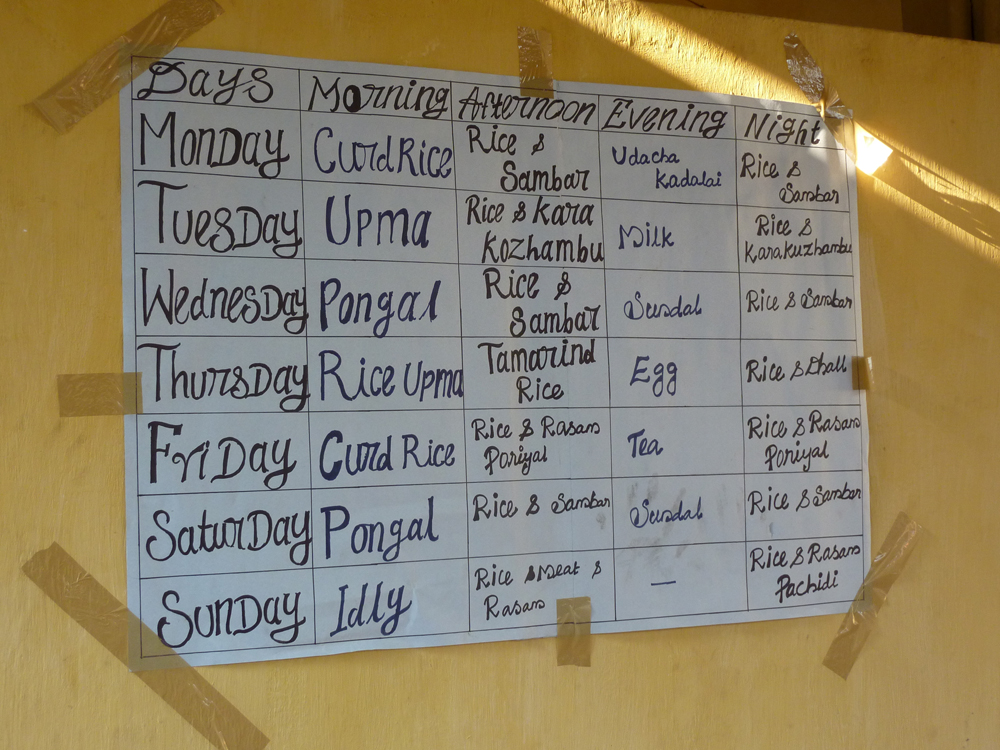 Days Morning Afternoon Evening Night
Monday Curd Rice Rice & Sambar Udacha Kadalai Rice & Sambar
Tuesday Upma Rice & Kara Kozhambu Milk Rice & Karakuzhambu
Wednesday Pongal Rice & Sambar Sundal Rice & Sambar
Thursday Rice Upma Tamarind Rice Egg Rice & Dhall
Friday Curd Rice Rice & Rasam Poriyal Tea Rice & Rasam Poriyal
Saturday Pongal Rice & Sambar Sundal Rice & Sambar
Sunday Idlly Rice & Meat & Rasam — Rice & Rasam Pachidi